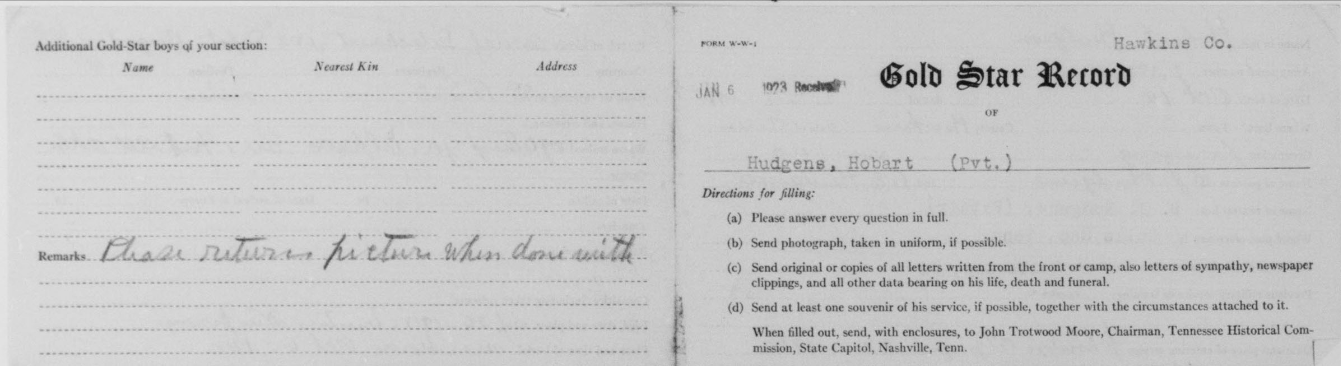 Additional Gold-Star boys of your section:
Name Nearest Kin Address
Remarks Please return picture when done with
FORM W-W-1
Hawkins Co.
JAN 6 1923 Received
Gold Star Record
OF
Hudgens, Hobart (Pvt.)
Directions for filling:
(a) Please answer every question in full.
(b) Send photograph, taken in uniform, if possible.
(c) Send original or copies of all letters written from the front or camp, also letters of sympathy, newspaper
clippings, and all other data bearing on his life, death and funeral.
(d) Send at least one souvenir of his service, if possible, together with the circumstances attached to it.
When filled out, send, with enclosures, to John Trotwood Moore, Chairman, Tennessee Historical Com-
mission, State Capitol, Nashville, Tenn.